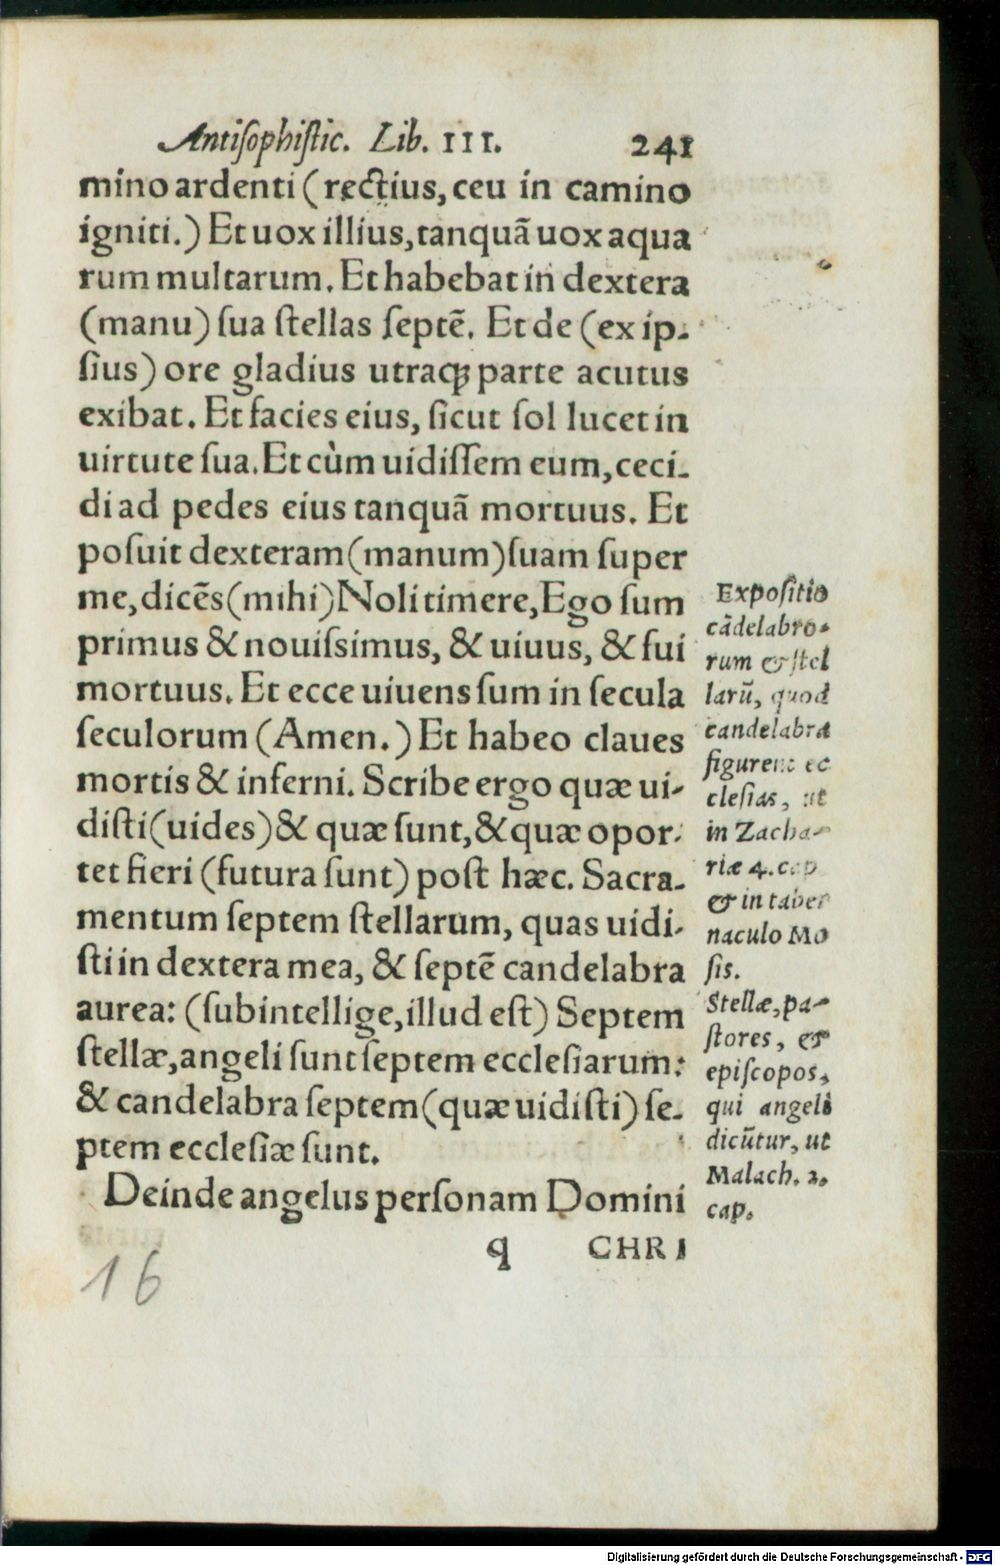 Antiſophiſtic. Lib. III. 241
mino ardenti (rectius, ceu in camino
igniti.) Et uox illius, tanquã uox aqua
rum multarum. Et habebat in dextera
(manu) ſua ſtellas ſeptẽ. Et de (ex ip-
ſius) ore gladius utraqꝫ parte acutus
exibat. Et facies eius, ſicut ſol lucet in
uirtute ſua. Et cùm uidiſſem eum, ceci-
di ad pedes eius tanquã mortuus. Et
poſuit dexteram (manum) ſuam ſuper
me, dicẽs (mihi) Noli timere, Ego ſum
primus & nouiſsimus, & uiuus, & fui
mortuus. Et ecce uiuens ſum in ſecula
ſeculorum (Amen.) Et habeo claues
mortis & inferni. Scribe ergo quæ ui-
diſti (uides) & quæ ſunt, & quæ opor-
tet fieri (futura ſunt) poſt hæc. Sacra-
mentum ſeptem ſtellarum, quas uidi-
ſti in dextera mea, & ſeptẽ candelabra
aurea: (ſubintellige, illud eſt) Septem
ſtellæ, angeli ſunt ſeptem ecclesiarum:
& candelabra ſeptem (quæ uidiſti) ſe-
ptem eccleſiæ ſunt.
Deinde angelus perſonam Domini
q CHRI
Expoſitio
cãdelabro-
rum & ſtel
larũ, quod
candelabra
figurent ec
cleſias, ut
in Zacha-
riæ 4. cap
& in taber
naculo Mo
ſis.
Stellæ, pa-
ſtores, &
epiſcopos,
qui angeli
dicũtur, ut
Malach. 2.
cap.
16
Digitalisierung gefördert durch die Deutsche Forschungsgemeinschaft - DFG